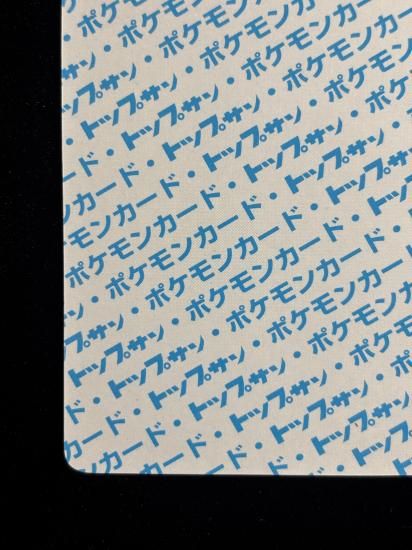 サン・ポケモンカ
ップサン・ポケモンカー
・トップサン・ポケモンカ
ド・トップサン・ポケモンカ
ード・トップサン・ポケモン
カード・トップサン・ポケモ
ンカード・トップサン・ポケ
モンカード・トップサン・
ポケモンカード・トップサン
・ポケモンカード・トップ
サン・ポケモンカード・
プサン・ポケモンカード
トップサン・ポケモンカード
・トップサン・ポケモンカ
ド・トップサン・ポケモン
カード・トップサン・ポケ
ンカード・トップサン
カード・トップサン
ード・トップ